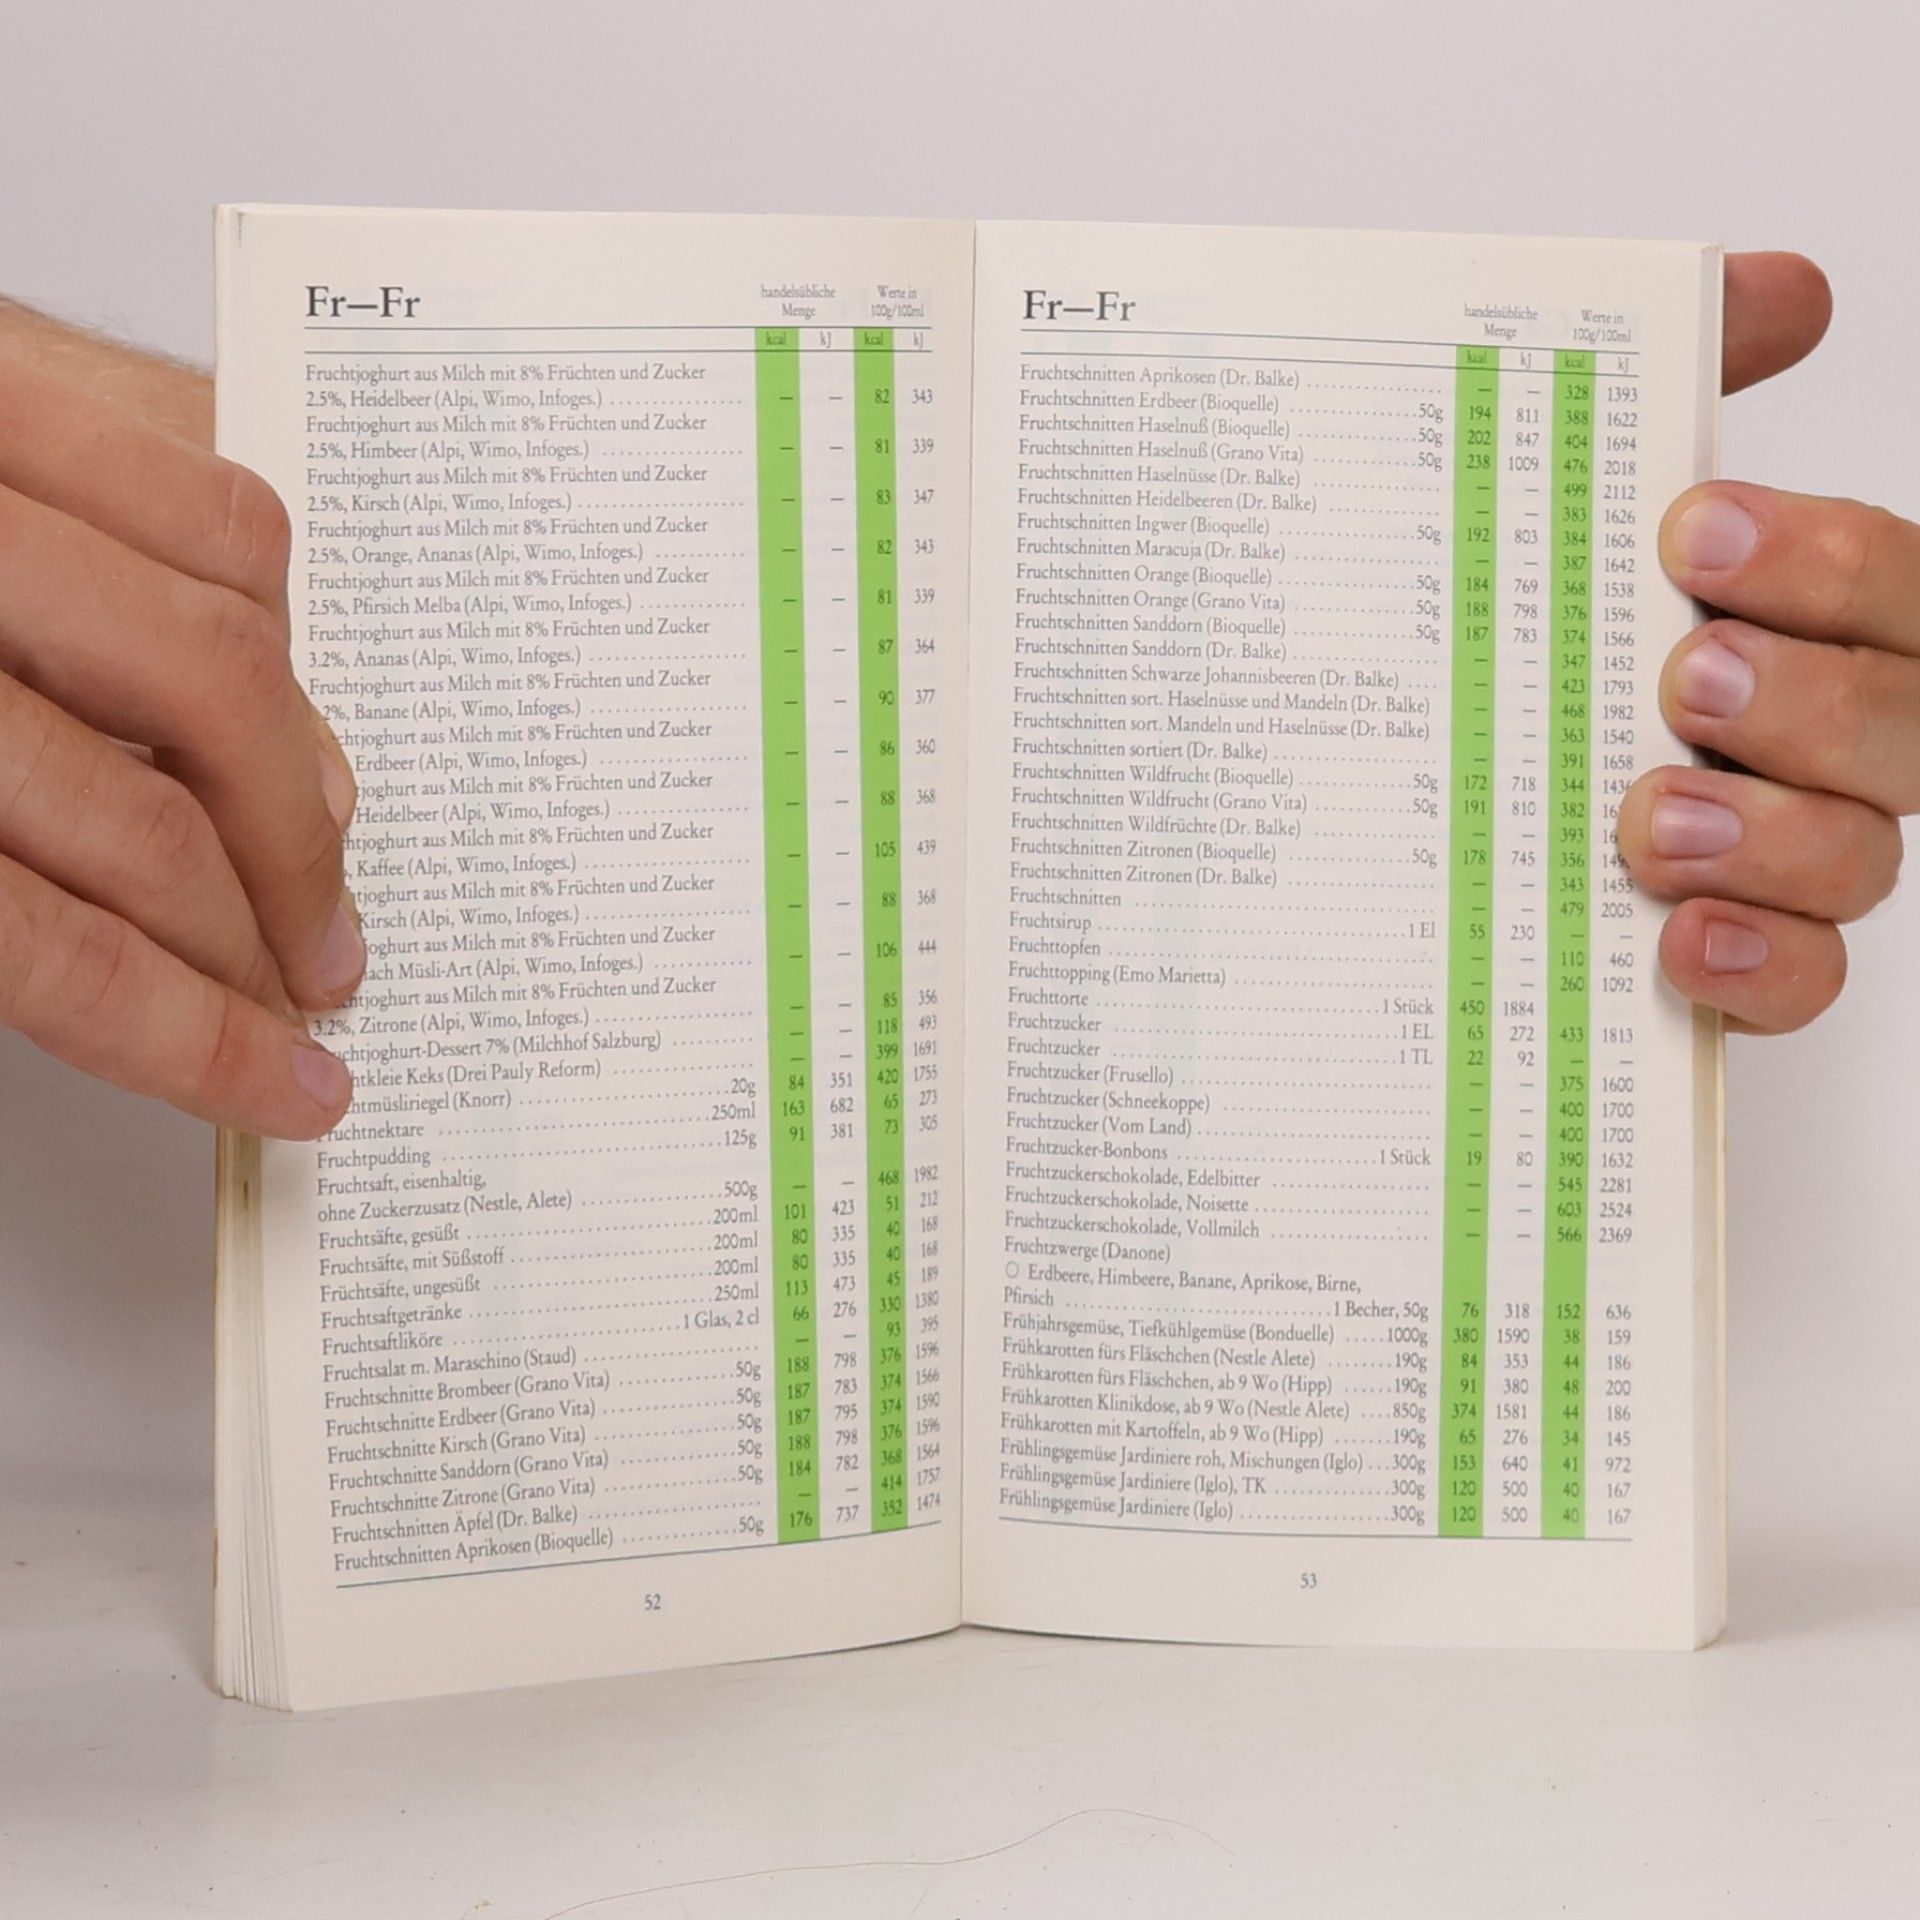 Fr—Fr
handelsübliche Menge Werte in 100g/100ml
kcal kJ kcal kJ
Fruchtjoghurt aus Milch mit 8% Früchten und Zucker
2.5%, Heidelbeer (Alpi, Wimo, Infoges.) — — 82 343
Fruchtjoghurt aus Milch mit 8% Früchten und Zucker
2.5%, Himbeer (Alpi, Wimo, Infoges.) — — 81 339
Fruchtjoghurt aus Milch mit 8% Früchten und Zucker
2.5%, Kirsch (Alpi, Wimo, Infoges.) — — 83 347
Fruchtjoghurt aus Milch mit 8% Früchten und Zucker
2.5%, Orange, Ananas (Alpi, Wimo, Infoges.) — — 82 343
Fruchtjoghurt aus Milch mit 8% Früchten und Zucker
2.5%, Pfirsich Melba (Alpi, Wimo, Infoges.) — — 81 339
Fruchtjoghurt aus Milch mit 8% Früchten und Zucker
3.2%, Ananas (Alpi, Wimo, Infoges.) — — 87 364
Fruchtjoghurt aus Milch mit 8% Früchten und Zucker
2%, Banane (Alpi, Wimo, Infoges.) — — 90 377
chtjoghurt aus Milch mit 8% Früchten und Zucker
Erdbeer (Alpi, Wimo, Infoges.) — — 86 360
tjoghurt aus Milch mit 8% Früchten und Zucker
Heidelbeer (Alpi, Wimo, Infoges.) — — 88 368
htjoghurt aus Milch mit 8% Früchten und Zucker
, Kaffee (Alpi, Wimo, Infoges.) — — 105 439
tjoghurt aus Milch mit 8% Früchten und Zucker
Kirsch (Alpi, Wimo, Infoges.) — — 88 368
joghurt aus Milch mit 8% Früchten und Zucker
nach Müsli-Art (Alpi, Wimo, Infoges.) — — 106 444
chtjoghurt aus Milch mit 8% Früchten und Zucker
3.2%, Zitrone (Alpi, Wimo, Infoges.) — — 85 356
uchtjoghurt-Dessert 7% (Milchhof Salzburg) — — 118 493
htkleie Keks (Drei Pauly Reform) — — 399 1691
htmüsliriegel (Knorr) 20g 84 351 420 1755
Fruchtnektare 250ml 163 682 65 273
Fruchtpudding 125g 91 381 73 305
Fruchtsaft, eisenhaltig,
ohne Zuckerzusatz (Nestle, Alete) 500g — — 468 1982
Fruchtsäfte, gesüßt 200ml 101 423 51 212
Fruchtsäfte, mit Süßstoff 200ml 80 335 40 168
Früchtsäfte, ungesüßt 200ml 80 335 40 168
Fruchtsaftgetränke 250ml 113 473 45 189
Fruchtsaftliköre 1 Glas, 2 cl 66 276 330 1380
Fruchtsalat m. Maraschino (Staud) — — 93 395
Fruchtschnitte Brombeer (Grano Vita) 50g 188 798 376 1596
Fruchtschnitte Erdbeer (Grano Vita) 50g 187 783 374 1566
Fruchtschnitte Kirsch (Grano Vita) 50g 187 795 374 1590
Fruchtschnitte Sanddorn (Grano Vita) 50g 188 798 376 1596
Fruchtschnitte Zitrone (Grano Vita) 50g 184 782 368 1564
Fruchtschnitten Äpfel (Dr. Balke) — — 414 1757
Fruchtschnitten Aprikosen (Bioquelle) 50g 176 737 352 1474
52
Fr—Fr
handelsübliche Menge Werte in 100g/100ml
kcal kJ kcal kJ
Fruchtschnitten Aprikosen (Dr. Balke) — — 328 1393
Fruchtschnitten Erdbeer (Bioquelle) 50g 194 811 388 1622
Fruchtschnitten Haselnuß (Bioquelle) 50g 202 847 404 1694
Fruchtschnitten Haselnuß (Grano Vita) 50g 238 1009 476 2018
Fruchtschnitten Haselnüsse (Dr. Balke) — — 499 2112
Fruchtschnitten Heidelbeeren (Dr. Balke) — — 383 1626
Fruchtschnitten Ingwer (Bioquelle) 50g 192 803 384 1606
Fruchtschnitten Maracuja (Dr. Balke) — — 387 1642
Fruchtschnitten Orange (Bioquelle) 50g 184 769 368 1538
Fruchtschnitten Orange (Grano Vita) 50g 188 798 376 1596
Fruchtschnitten Sanddorn (Bioquelle) 50g 187 783 374 1566
Fruchtschnitten Sanddorn (Dr. Balke) — — 347 1452
Fruchtschnitten Schwarze Johannisbeeren (Dr. Balke) — — 423 1793
Fruchtschnitten sort. Haselnüsse und Mandeln (Dr. Balke) — — 468 1982
Fruchtschnitten sort. Mandeln und Haselnüsse (Dr. Balke) — — 363 1540
Fruchtschnitten sortiert (Dr. Balke) — — 391 1658
Fruchtschnitten Wildfrucht (Bioquelle) 50g 172 718 344 1436
Fruchtschnitten Wildfrucht (Grano Vita) 50g 191 810 382
Fruchtschnitten Wildfrüchte (Dr. Balke) — — 393
Fruchtschnitten Zitronen (Bioquelle) 50g 178 745 356
Fruchtschnitten Zitronen (Dr. Balke) — — 343 1455
Fruchtschnitten — — 479 2005
Fruchtsirup 1 El 55 230 — —
Fruchttopfen — — 110 460
Fruchttopping (Emo Marietta) — — 260 1092
Fruchttorte 1 Stück 450 1884
Fruchtzucker 1 EL 65 272 433 1813
Fruchtzucker 1 TL 22 92 — —
Fruchtzucker (Frusello) — — 375 1600
Fruchtzucker (Schneekoppe) — — 400 1700
Fruchtzucker (Vom Land) — — 400 1700
Fruchtzucker-Bonbons 1 Stück 19 80 390 1632
Fruchtzuckerschokolade, Edelbitter — — 545 2281
Fruchtzuckerschokolade, Noisette — — 603 2524
Fruchtzuckerschokolade, Vollmilch — — 566 2369
Fruchtzwerge (Danone)
○ Erdbeere, Himbeere, Banane, Aprikose, Birne,
Pfirsich 1 Becher, 50g 76 318 152 636
Frühjahrsgemüse, Tiefkühlgemüse (Bonduelle) 1000g 380 1590 38 159
Frühkarotten fürs Fläschchen (Nestle Alete) 190g 84 353 44 186
Frühkarotten fürs Fläschchen, ab 9 Wo (Hipp) 190g 91 380 48 200
Frühkarotten Klinikdose, ab 9 Wo (Nestle Alete) 850g 374 1581 44 186
Frühkarotten mit Kartoffeln, ab 9 Wo (Hipp) 190g 65 276 34 145
Frühlingsgemüse Jardiniere roh, Mischungen (Iglo) 300g 153 640 41 972
Frühlingsgemüse Jardiniere (Iglo), TK 300g 120 500 40 167
Frühlingsgemüse Jardiniere (Iglo) 300g 120 500 40 167
53